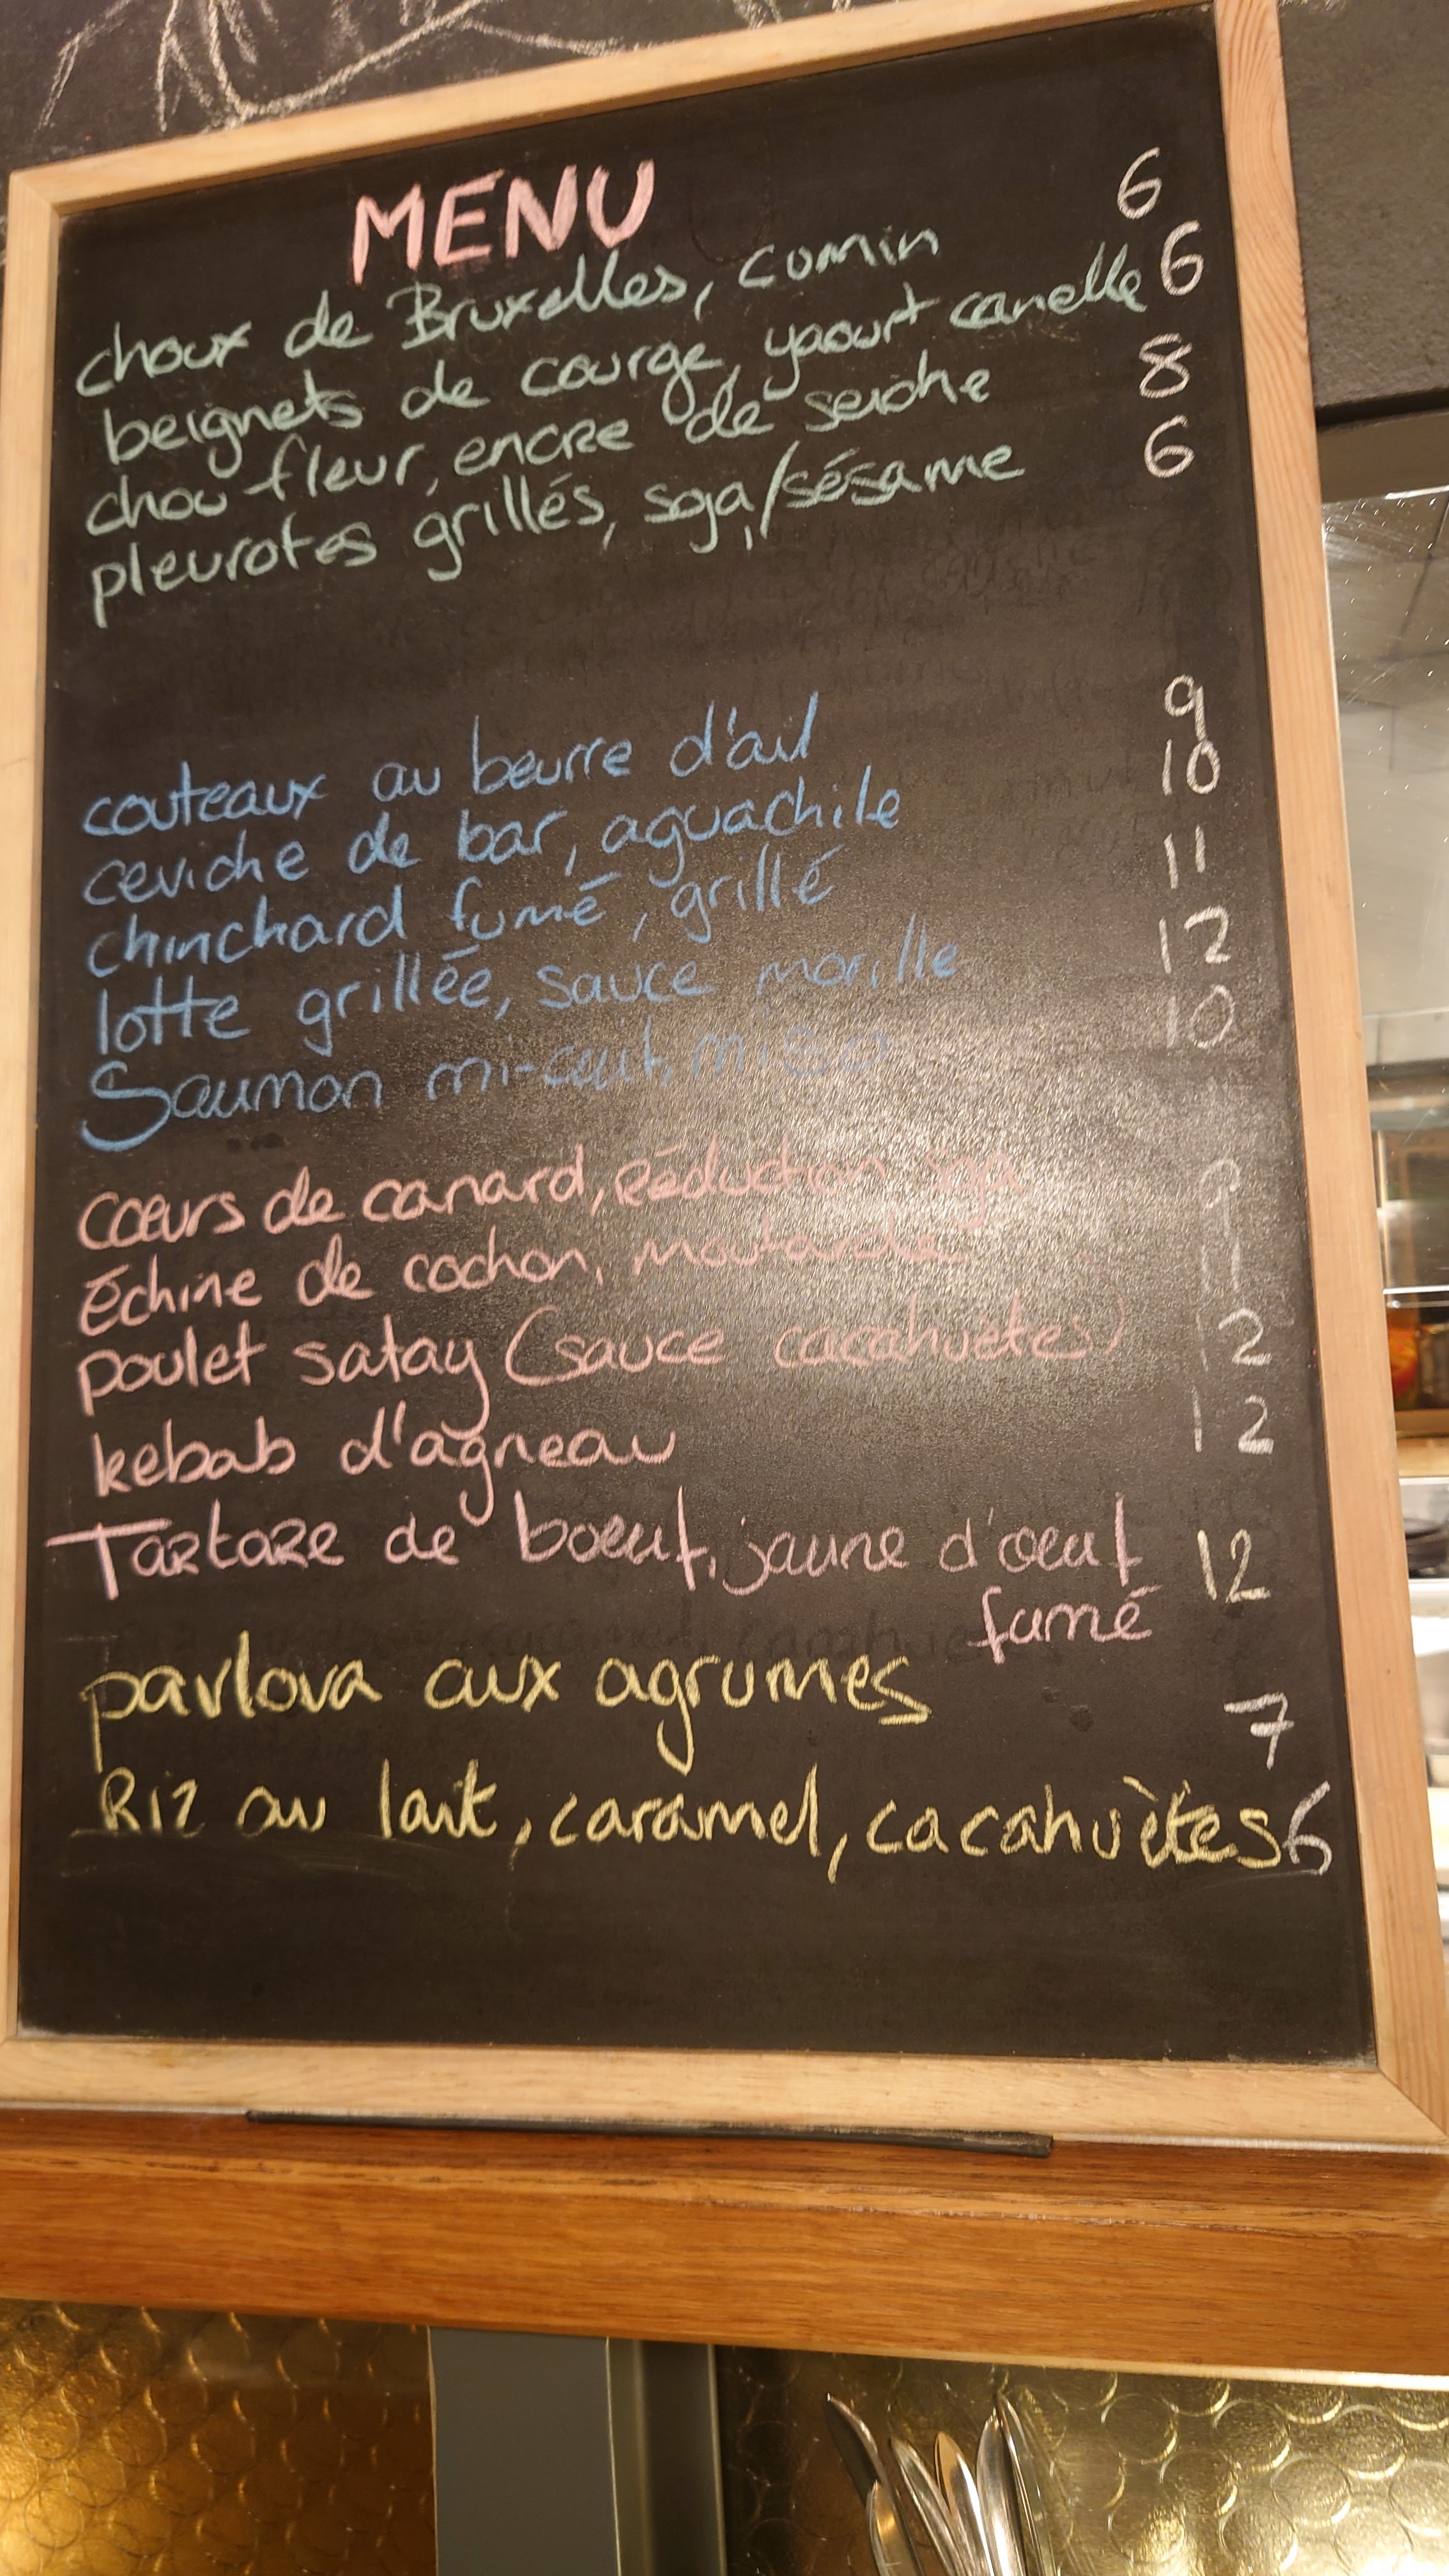 MENU
choux de Bruxelles, cumin 6
beignets de courge, yaourt canelle 6
chou fleur, encre de seiche 8
pleurotes grillés, soja/sésame 6
couteaux au beurre d'ail 9
ceviche de bar, aguachile 10
chinchard fumé, grillé 11
lotte grillée, sauce morille 12
Saumon mi-cuit, miso 10
cœurs de canard, réduction soja 9
Échine de cochon, moutarde 11
poulet satay (sauce cacahuètes) 12
kebab d'agneau 12
Tartare de boeuf, jaune d'oeuf 12
fumé
pavlova aux agrumes 7
Riz au lait, caramel, cacahuètes 6